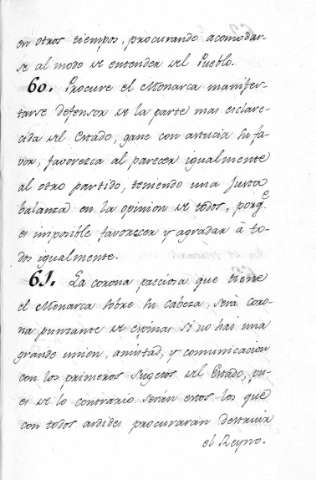 en otros tiempos, procurando acomodar-
se al modo de entender del Pueblo.
60. Procure el Monarca manifes-
tarse defensor de la parte mas esclare-
cida del Estado, gane con astucia su fa-
vor, favoresca al parecer igualmente
al otro partido, teniendo una Justa
balanza en la opinion de todos, porqe
es imposible favorecer y agradar à to-
dos igualmente.
61. La corona preciosa que tiene
el Monarca sobre su cabeza, será coro-
na punzante de espinas si no hai una
grande union, amistad, y comunicacion
con los primeros Sugetos del Estado, pu-
es de lo contrario serán estos los que
con todos ardides procuraran destruir
el Reyno.